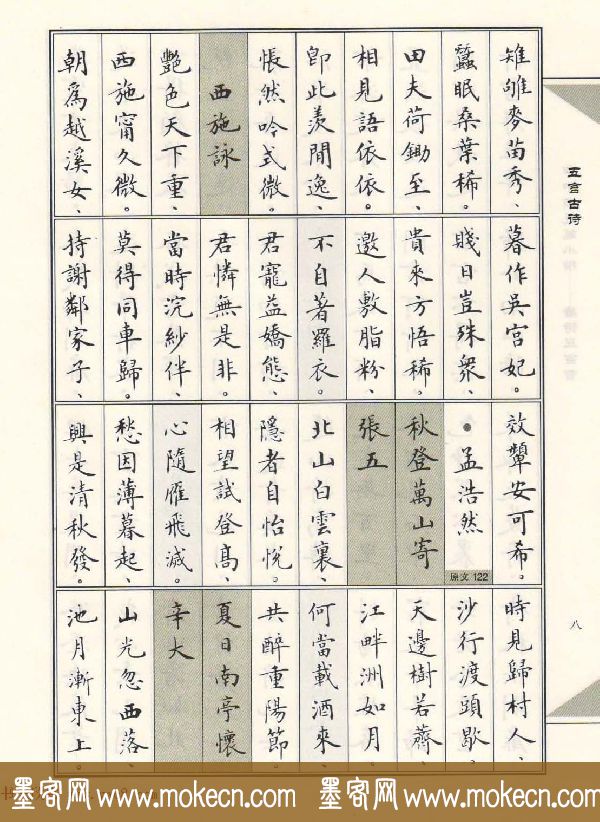 五言古诗
雉雊麥苗秀、
蠶眠桑葉稀。
田夫荷鋤至、
相見語依依。
卽此羨閒逸、
悵然吟式微。
西施詠
艷色天下重、
西施甯久微。
朝爲越溪女、
暮作吳宮妃。
賤日豈殊衆、
貴來方悟稀。
邀人敷脂粉、
不自著羅衣。
君寵益嬌態、
君憐無是非。
當時浣紗伴、
莫得同車歸。
持謝鄰家子、
效顰安可希。
•孟浩然
原文122
秋登萬山寄
張五
北山白雲裏、
隱者自怡悅。
相望試登高、
心隨雁飛滅。
愁因薄暮起、
興是清秋發。
時見歸村人、
沙行渡頭歇。
天邊樹若薺、
江畔洲如月。
何當載酒來、
共醉重陽節。
夏日南亭懷
辛大
山光忽西落、
池月漸東上。
八
墨客网 www.mokecn.com 墨客网 www.mokecn.com